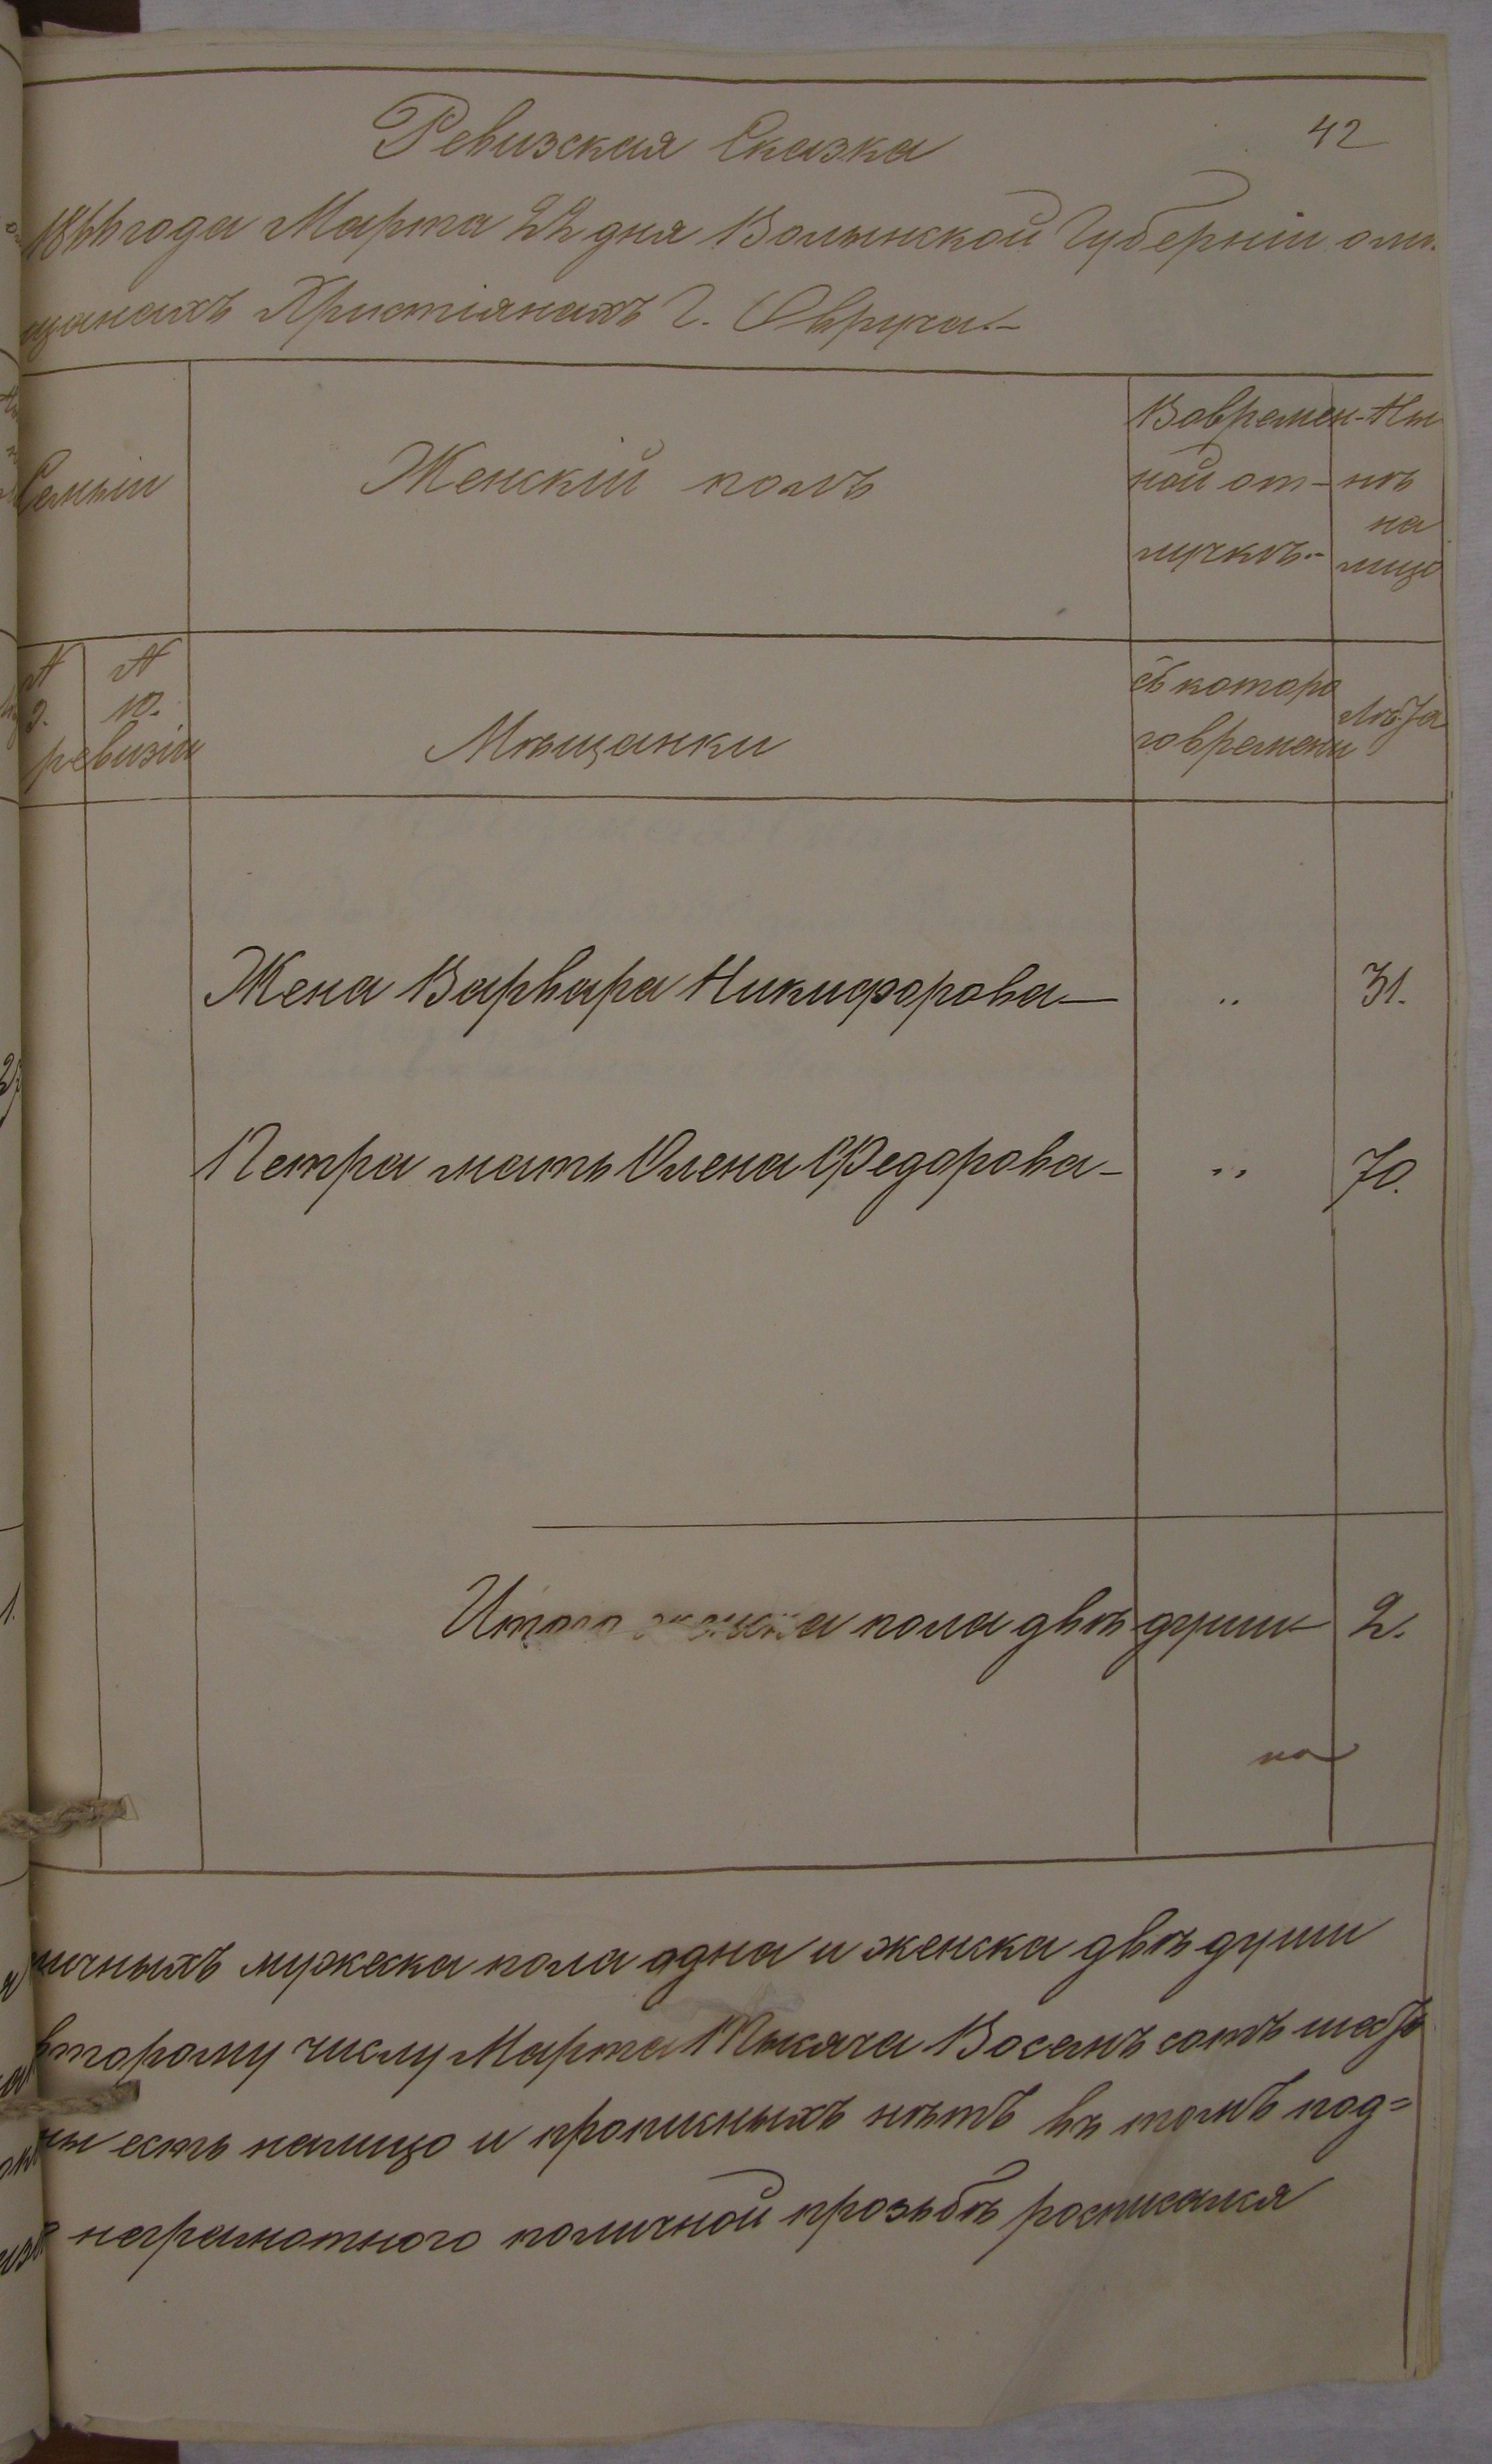 42
Ревизская Сказка
1866 года Марта 22 дня Волынской Губерніи о мѣ-
щанахъ Христіянахъ г. Овруча.-
Семьи
Женскій полъ
Вовремен-
ной от-
лучкѣ.-
Ны
нѣ
на
лицо
№ 9.
№ 10.
ревизіи
Мѣщанки
Съ которо
говремени
Лѣта
Жена Варвара Никифорова — „ 31.
Петра мать Олена Федорова - „ 70.
Итого женска пола двѣ души 2.
личныхъ мужеска пола одна и женска двѣ души
второму числу Марта Тысяча Восемъ сотъ шесть
есть налицо и прописныхъ нѣтъ въ томъ под=
неграмотного поличной прозьбѣ росписался